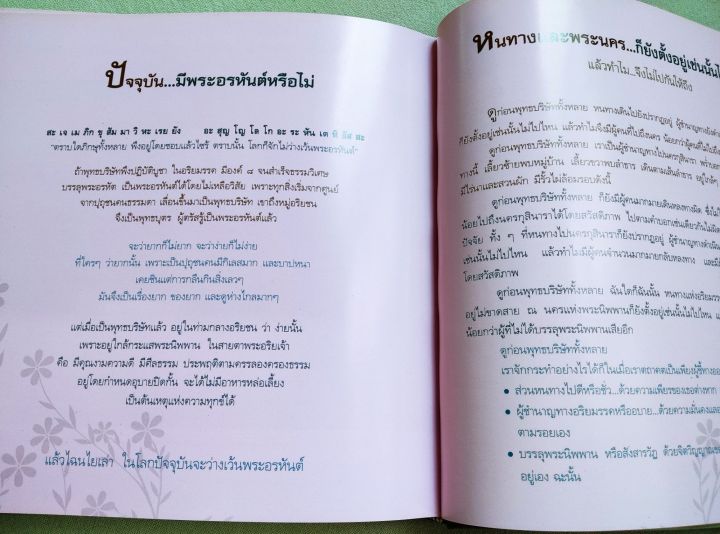 ปัจจุบัน...มีพระอรหันต์หรือไม่
สะ เจ เม ภิก ขู สัม มา วิ หะ เรย ยัง อะ สุญ โญ โล โก อะ ระ หัน เต หิ อัส สะ
"ตราบใดภิกษุทั้งหลาย พึงอยู่โดยชอบแล้วไซร้ ตราบนั้น โลกก็จักไม่ว่างเว้นพระอรหันต์"
ถ้าพุทธบริษัทพึงปฏิบัติบูชา ในอริยมรรค มีองค์ ๘ จนสำเร็จธรรมวิเศษ
บรรลุพระอรหัต เป็นพระอรหันต์ได้โดยไม่เหลือวิสัย เพราะทุกสิ่งเริ่มจากศูนย์
จากปุถุชนคนธรรมดา เลื่อนขึ้นมาเป็นพุทธบริษัท เขาถึงหมู่อริยชน
จึงเป็นพุทธบุตร ผู้ตรัสรู้เป็นพระอรหันต์แล้ว
จะว่ายากก็ไม่ยาก จะว่าง่ายก็ไม่ง่าย
ที่ใครๆ ว่ายากนั้น เพราะเป็นปุถุชนคนมีกิเลสมาก และบาปหนา
เคยชินแต่การกลืนกินสิ่งเลวๆ
มันจึงเป็นเรื่องยาก ของยาก และดูห่างไกลมากๆ
แต่เมื่อเป็นพุทธบริษัทแล้ว อยู่ในท่ามกลางอริยชน ว่า ง่ายนั้น
เพราะอยู่ใกล้กระแสพระนิพพาน ในสายตาพระอริยเจ้า
คือ มีคุณงามความดี มีศีลธรรม ประพฤติตามครรลองครองธรรม
อยู่โดยกำหนดอุบายปิดกั้น จะได้ไม่มีอาหารหล่อเลี้ยง
เป็นต้นเหตุแห่งความทุกข์ได้
แล้วไฉนไยเล่า ในโลกปัจจุบันจะว่างเว้นพระอรหันต์
หนทางและพระนคร...ก็ยังตั้งอยู่เช่นนั้น
แล้วทำไม...จึงไม่ไปกันให้ถึง
ดูก่อนพุทธบริษัททั้งหลาย หนทางเดินไปยังปรากฏอยู่ ผู้ชำนาญทางยังคง
ก็ยังตั้งอยู่เช่นนั้นไม่ไปไหน แล้วทำไมจึงมีผู้คนที่ไปถึงนคร น้อยกว่าผู้คนที่ไม่ไปถึง
ดูก่อนพุทธบริษัททั้งหลาย เราเป็นผู้ชำนาญทางไปนครกุสินารา
ทางนี้ เลี้ยวซ้ายพบหมู่บ้าน เลี้ยวขวาพบลำธาร เดินตามเส้นลำธาร อยู่ใกล้ๆ
มีไร่นาและสวนผัก มีรั้วไม้ล้อมรอบดังนี้
ดูก่อนพุทธบริษัททั้งหลาย ก็ยังมีผู้คนมากมายเดินหลงทางผิด
น้อยไปถึงนครกุสินาราได้โดยสวัสดิภาพ ไปตามคำบอกเช่นเดียวกันไม่ผิด
ปัจจัย ทั้ง ๆ ที่หนทางไปนครกุสินาราก็ยังปรากฏอยู่
เช่นนั้นไม่ไปไหน แล้วทำไมมีผู้คนจำนวนมากมายกลับหลงทาง และมี
โดยสวัสดิภาพ
ดูก่อนพุทธบริษัททั้งหลาย ฉันใดก็ฉันนั้น หนทางแห่งอริยมรรค
อยู่ไม่ขาดสาย ณ นครแห่งพระนิพพานก็ยังตั้งอยู่เช่นนั้นไม่ไปไหน
น้อยกว่าผู้ที่ไม่ได้บรรลุพระนิพพานเสียอีก
ดูก่อนพุทธบริษัททั้งหลาย
เราจักกระทำอย่างไรได้ก็ในเมื่อเราตถาคตเป็นเพียงผู้ชี้ทาง
• ส่วนหนทางไปดีหรือชั่ว...ด้วยความเพียรของเธอต่างหาก
• ผู้ชำนาญทางอริยมรรคหรืออบาย...ด้วยความมั่นคง
ตามรอยเอง
• บรรลุพระนิพพาน หรือสังสารวัฏ ด้วยจิตวิญญาณ
อยู่เอง ฉะนั้น